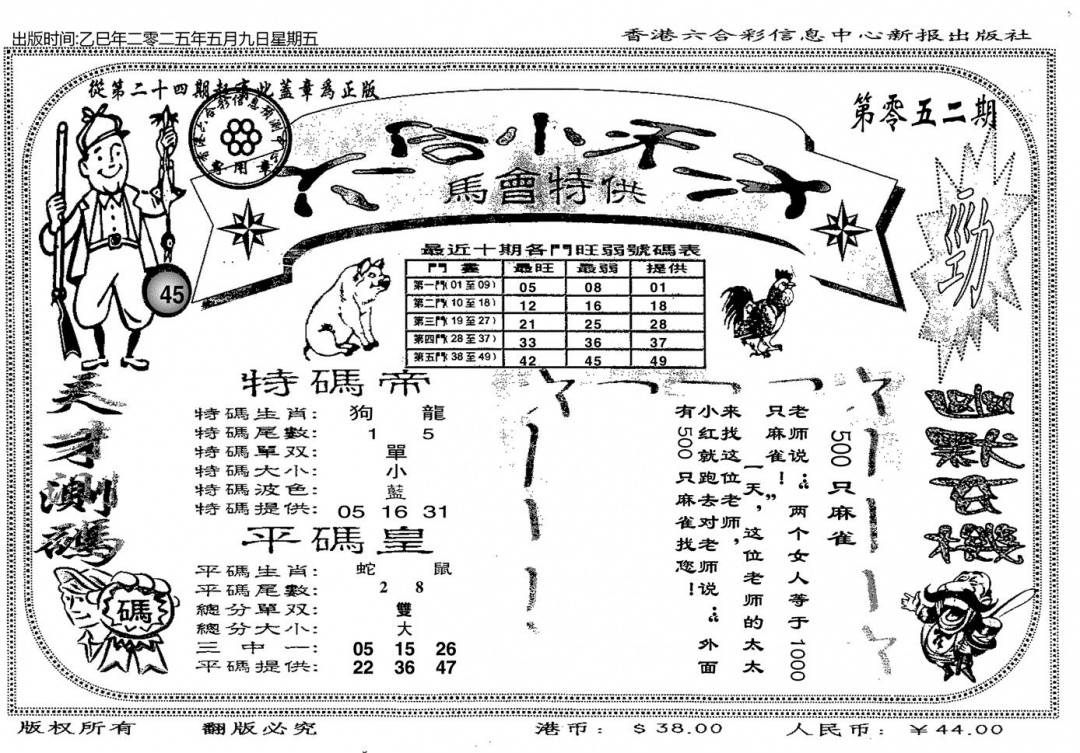 出版时间:乙巳年二零二五年五月九日星期五
香港六合彩信息中心新报出版社
從第二十四期起有此蓋章為正版
第零五二期
專用章
馬會特供
勁
45
最近十期各門旺弱號碼表
門 最旺 最弱 提供
第一門(01至09) 05 08 01
第二門(10至18) 12 16 18
第三門(19至27) 21 25 28
第四門(28至37) 33 36 37
第五門(38至49) 42 45 49
天才測碼
碼
特碼帝
特碼生肖: 狗 龍
特碼尾數: 1 5
特碼單双: 單
特碼大小: 小
特碼波色: 藍
特碼提供: 05 16 31
平碼皇
平碼生肖: 蛇 鼠
平碼尾數: 2 8
總分單双: 雙
總分大小: 大
三中一: 05 15 26
平碼提供: 22 36 47
500只麻雀
老师说:“两个女人等于1000
只麻雀!”
一天,这位老师的太太
来找这位老师,
小红就跑去对老师说:“外面
有500只麻雀找您!
玄機
版权所有
翻版必究
港币: $38.00
人民币: ￥44.00